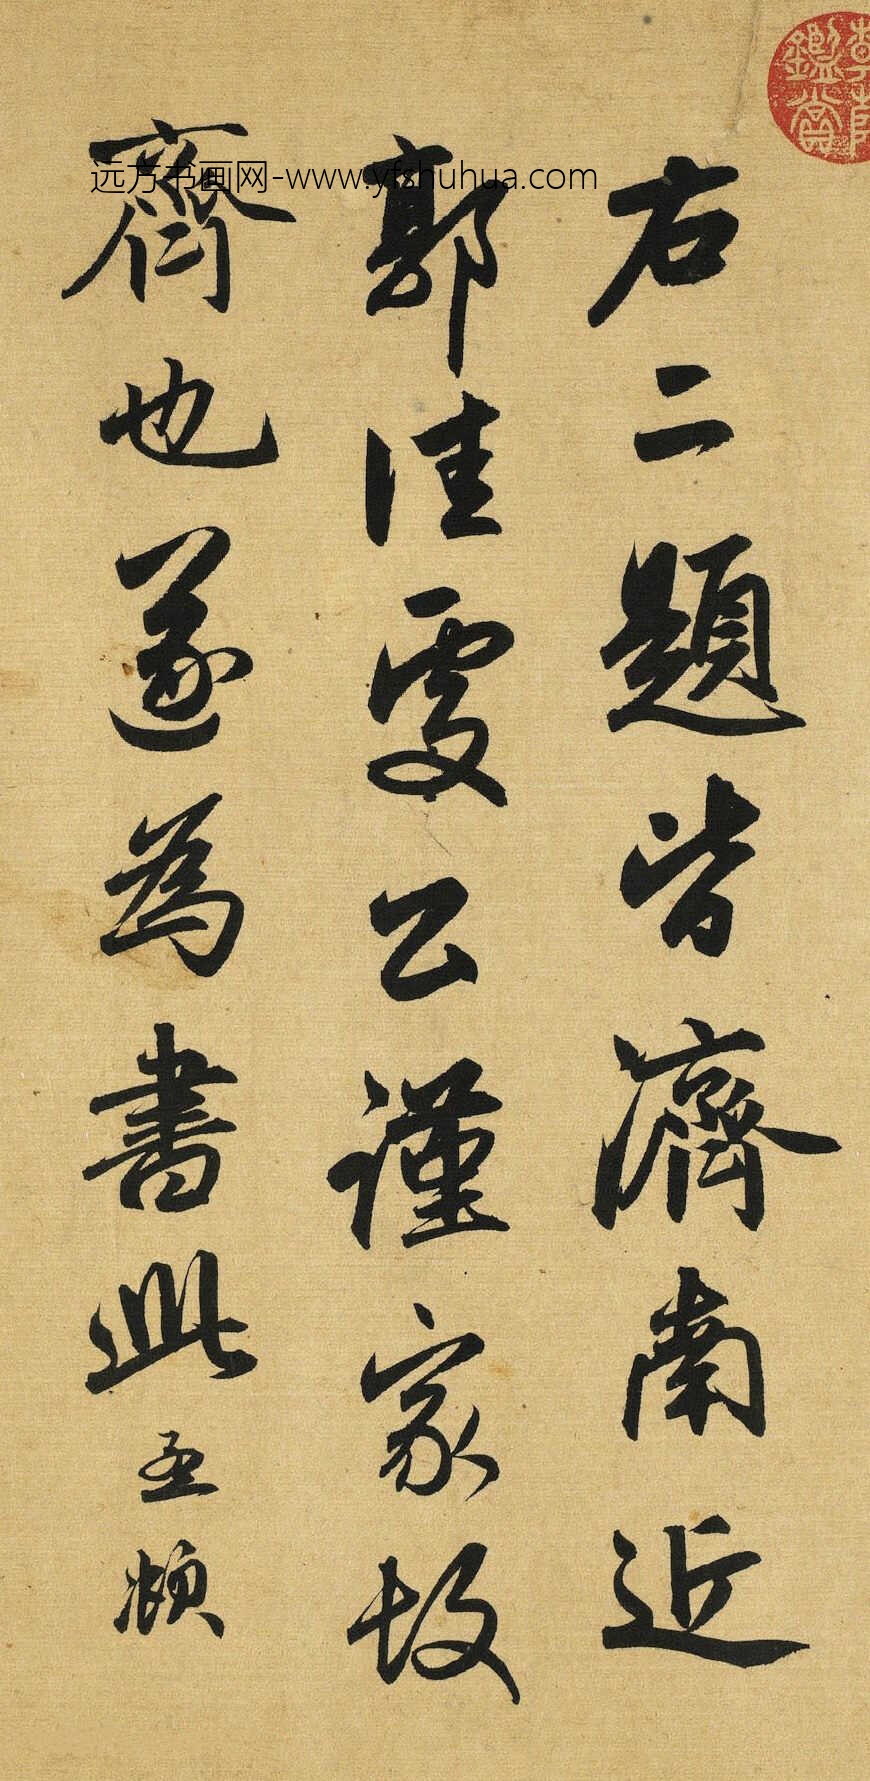 鑑賞
右二題皆濟南近
郭佳處公謹家故
齊也遂為書此孟頫
远方书画网-www.yfshuhua.com